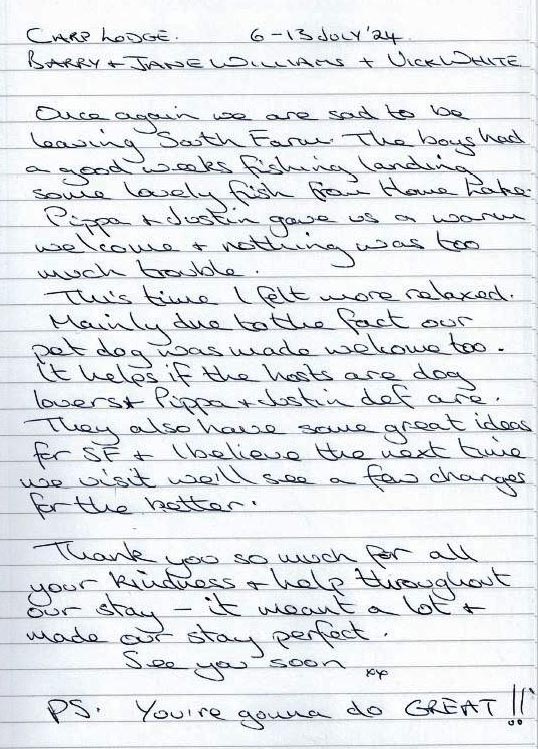 CARP LODGE. 6-13 JULY '24.
BARRY + JANE WILLIAMS + VICK WHITE
Once again we are sad to be
leaving South Farm. The boys had
a good weeks fishing landing
some lovely fish from Home Lake.
Pippa + Justin gave us a warm
welcome + nothing was too
much trouble.
This time I felt more relaxed.
Mainly due to the fact our
pet dog was made welcome too.
It helps if the hosts are dog
lovers + Pippa + Justin def are.
They also have some great ideas
for SF + I believe the next time
we visit we'll see a few changes
for the better.
Thank you so much for all
your kindness + help throughout
our stay - it meant a lot +
made our stay perfect.
See you soon xx
PS. You're gonna do GREAT!!